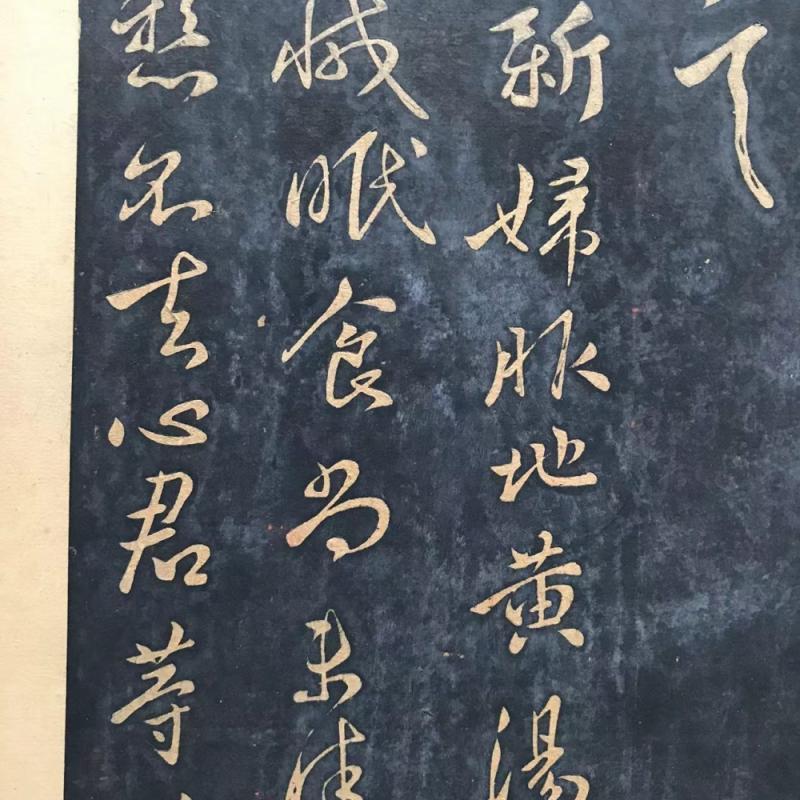 新婦服地黃湯
減眠食尚未佳
憂不去心君等